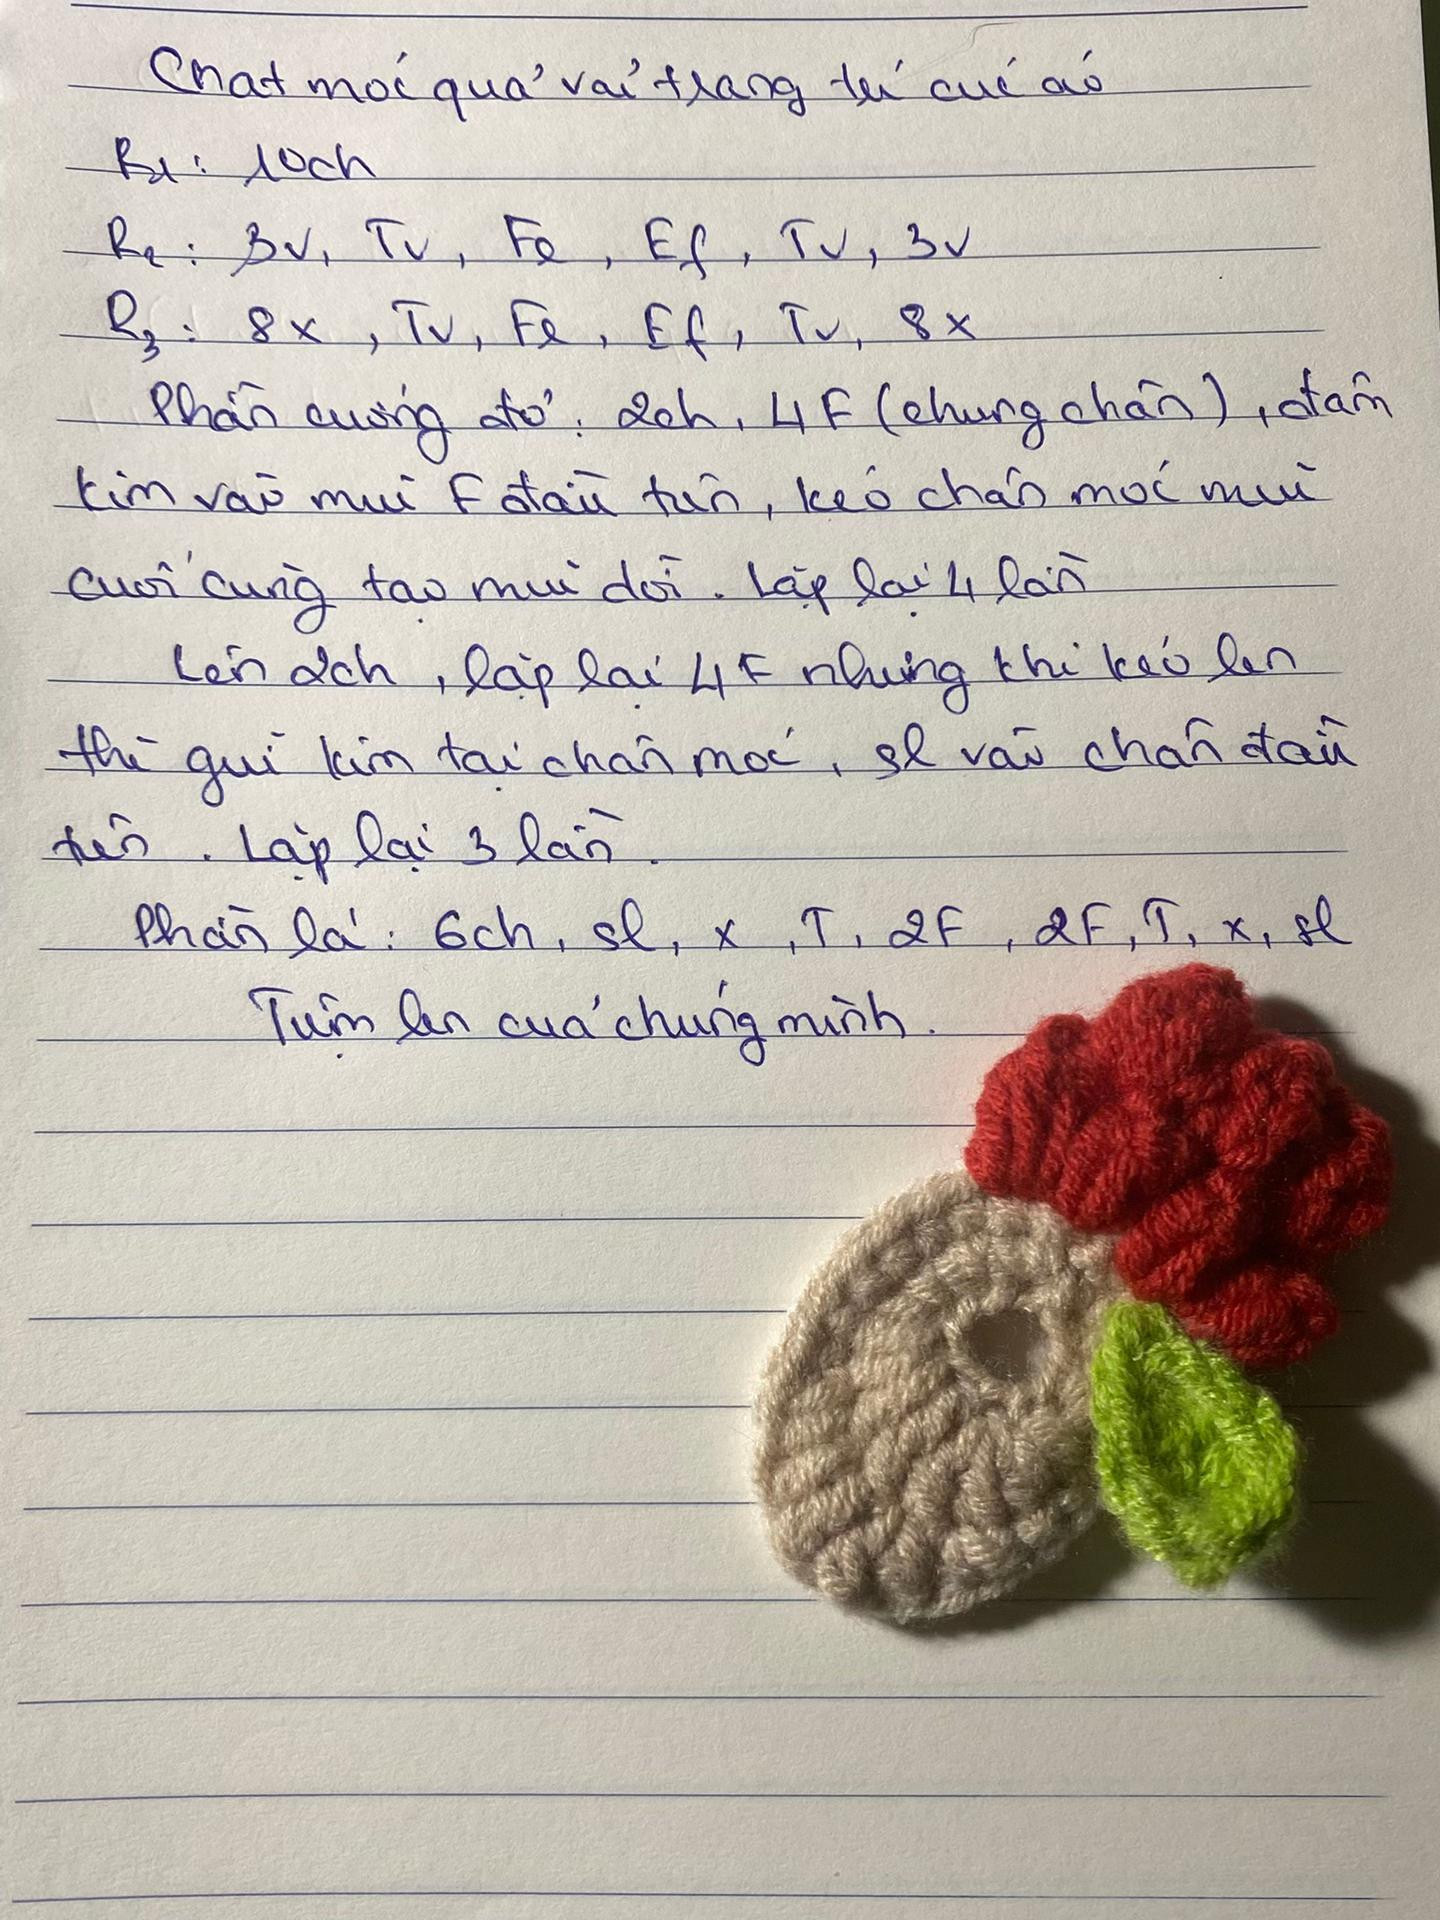 Chat moć quả vải trang trí cúc áo
R1: 10ch
R2: 3v, Tv, Fe, Ef, Tv, 3v
R3: 8x, Tv, Fe, Ef, Tv, 8x
Phần cuống đỏ: 2ch, 4F (chung chân), đâm
kim vào mũi F đầu tiên, kéo chân móc mũi
cuối cùng tạo mũi dôi. Lặp lại 4 lần
Lên 2ch, lặp lại 4F nhưng khi kéo len
thì giữ kim tại chân móc, sl vào chân đầu
tiên. Lặp lại 3 lần.
Phần lá: 6ch, sl, x, T, 2F, 2F, T, x, sl
Tiệm len của chúng mình.